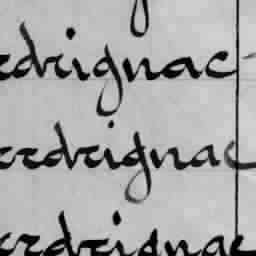 rdrignac
rrdrignac
rrdrignac